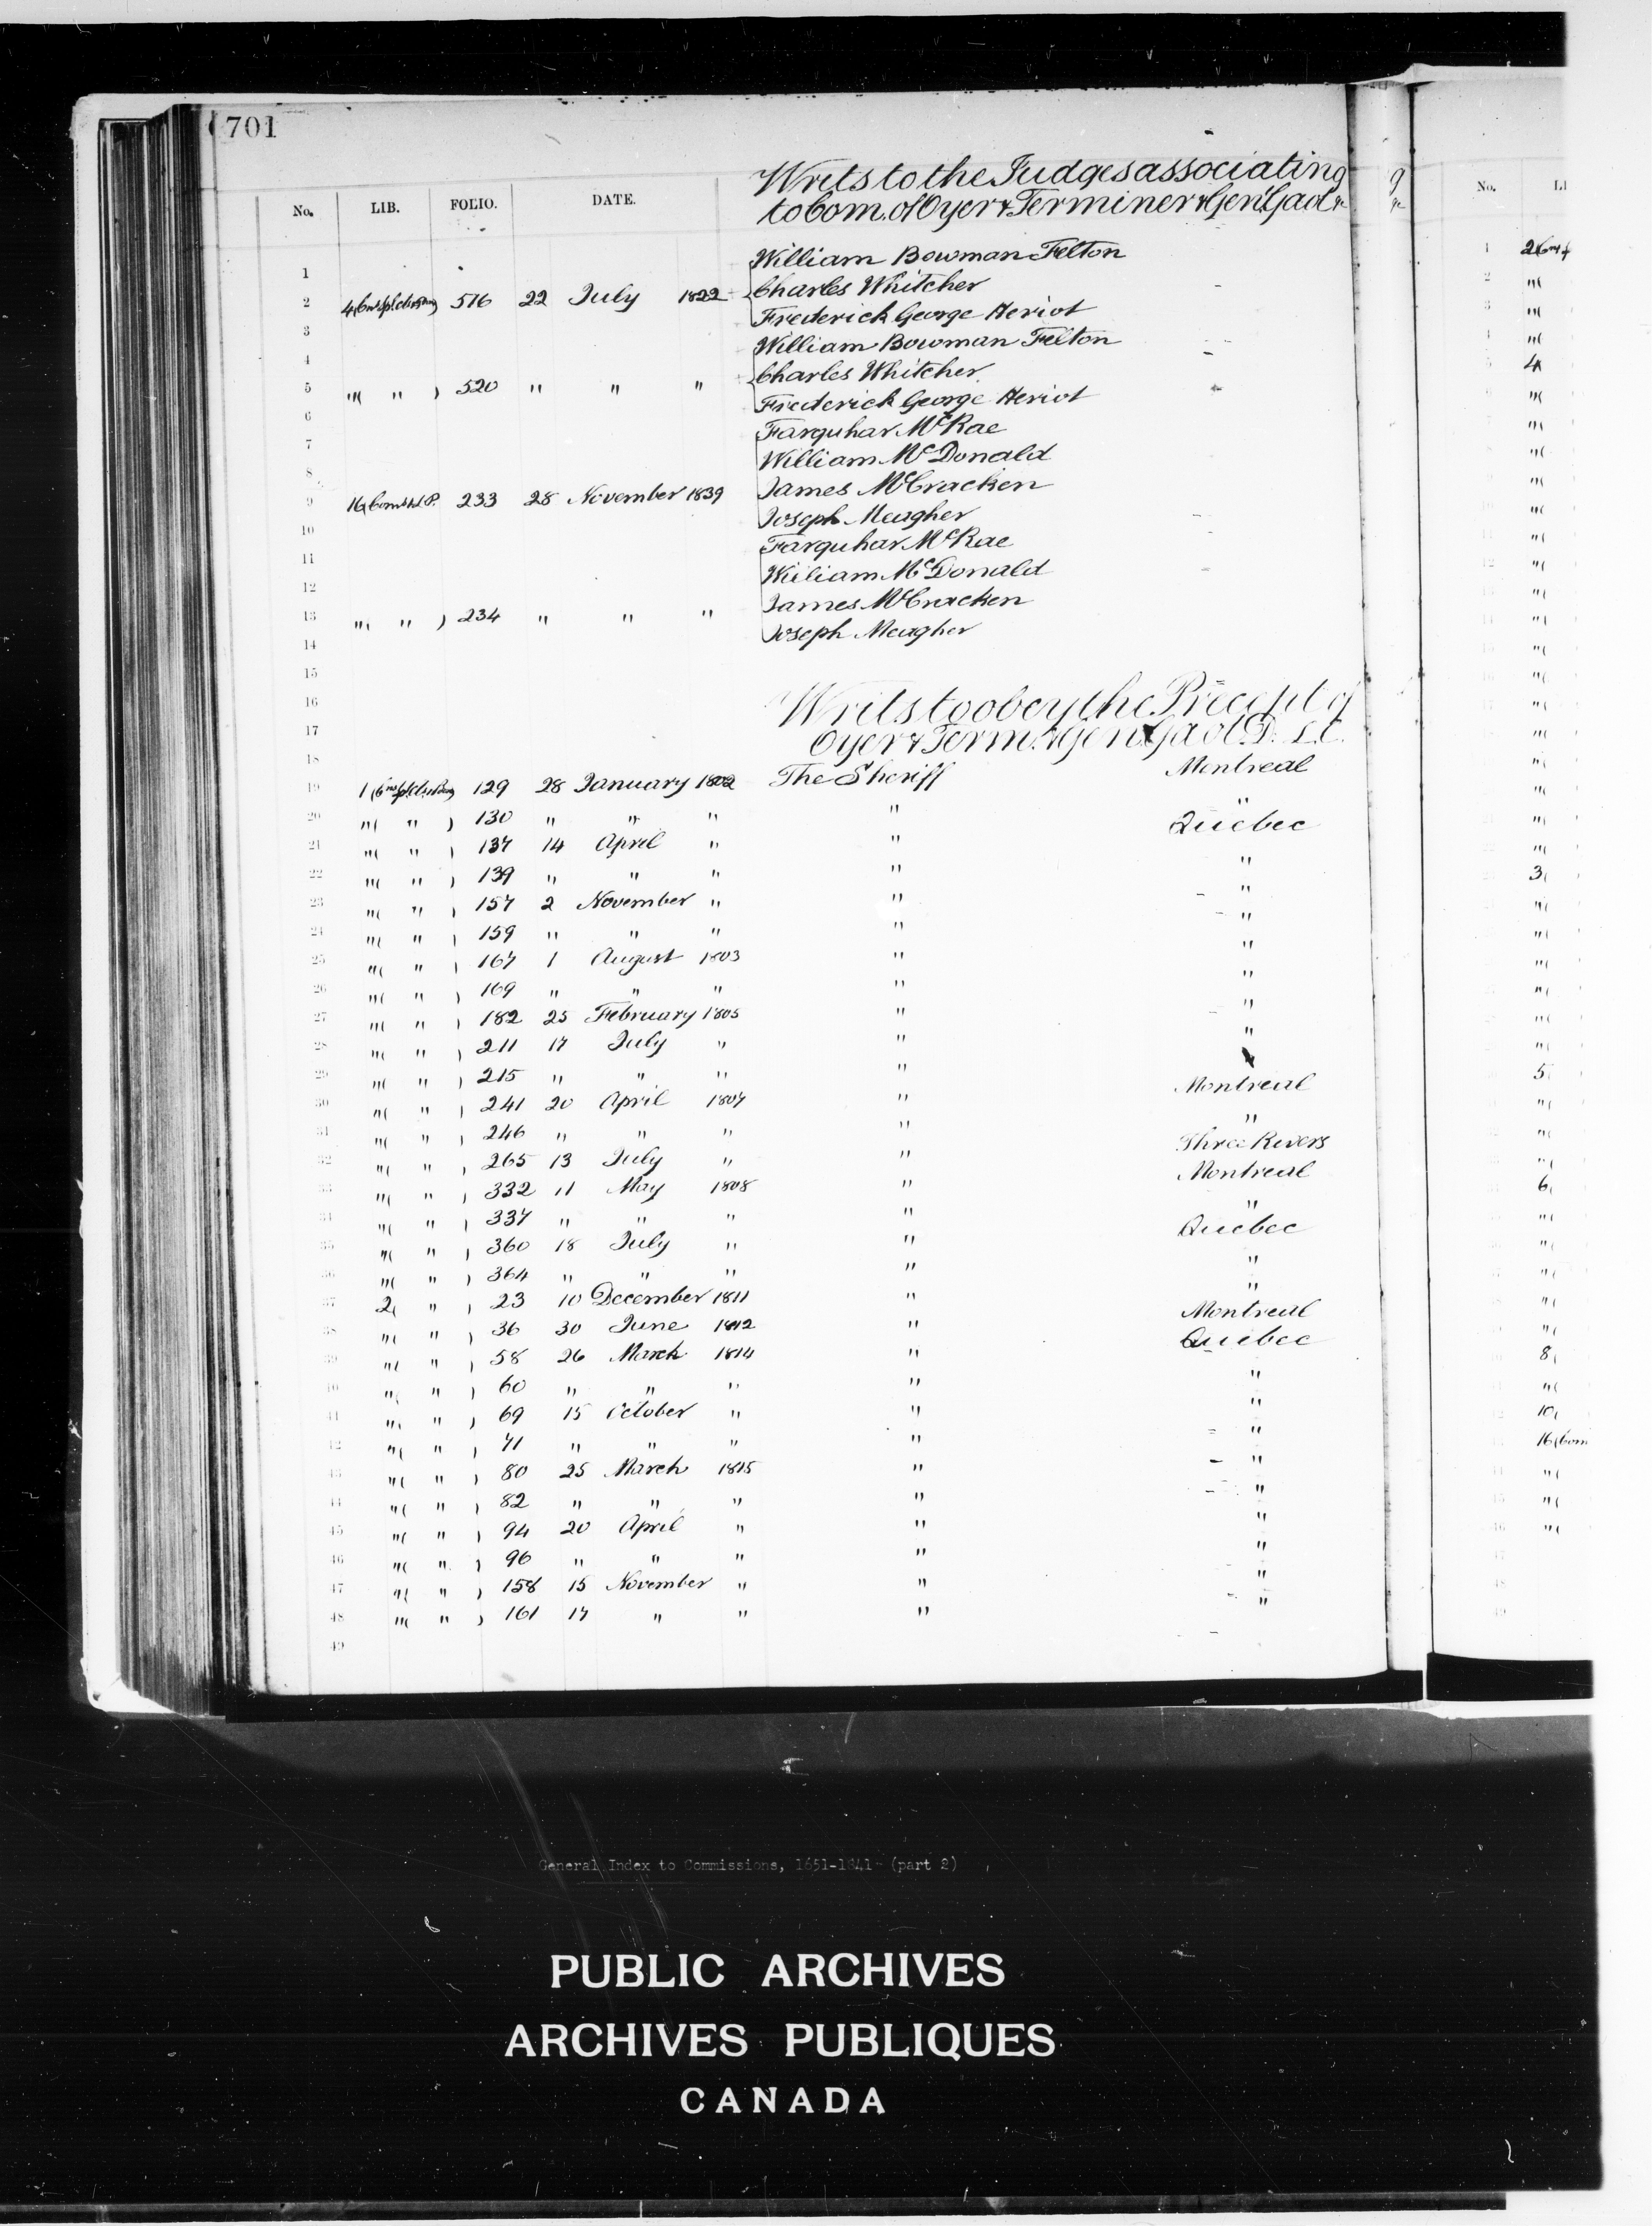 701
No. LIB. FOLIO. DATE. Writs to the Judges associating
to Com. of Oyer & Terminer & Gen'l Gaol &c
1 William Bowman Felton
2 4 516 22 July 1822 Charles Whitcher
3 Frederick George Heriot
4 William Bowman Felton
5 "( " ) 520 " " " Charles Whitcher
6 Frederick George Heriot
7 Farquhar McRae
8 William McDonald
9 16 233 28 November 1839 James McCracken
10 Joseph Meagher
11 Farquhar McRae
12 William McDonald
13 "( " ) 234 " " " James McCracken
14 Joseph Meagher
15
16 Writs to obey the Precept of
17 Oyer & Term. & Gen. Gaol D. L.C.
18
19 1 129 28 January 1802 The Sheriff Montreal
20 "( " ) 130 " " " " "
21 "( " ) 137 14 April " " Quebec
22 "( " ) 139 " " " " "
23 "( " ) 157 2 November " " "
24 "( " ) 159 " " " " "
25 "( " ) 167 1 August 1803 " "
26 "( " ) 169 " " " " "
27 "( " ) 182 25 February 1805 " "
28 "( " ) 211 17 July " " "
29 "( " ) 215 " " " "
30 "( " ) 241 20 April 1807 " Montreal
31 "( " ) 246 " " " " "
32 "( " ) 265 13 July " " Three Rivers
33 "( " ) 332 11 May 1808 " Montreal
34 "( " ) 337 " " " " "
35 "( " ) 360 18 July " " Quebec
36 "( " ) 364 " " " " "
37 2( " ) 23 10 December 1811 " "
38 "( " ) 36 30 June 1812 " Montreal
39 "( " ) 58 26 March 1814 " Quebec
40 "( " ) 60 " " " " "
41 "( " ) 69 15 October " " "
42 "( " ) 71 " " " " "
43 "( " ) 80 25 March 1815 " "
44 "( " ) 82 " " " " "
45 "( " ) 94 20 April " " "
46 "( " ) 96 " " " " "
47 "( " ) 158 15 November " " "
48 "( " ) 161 17 " " " "
49
No. LI
General Index to Commissions, 1651-1841 (part 2)
PUBLIC ARCHIVES
ARCHIVES PUBLIQUES
CANADA